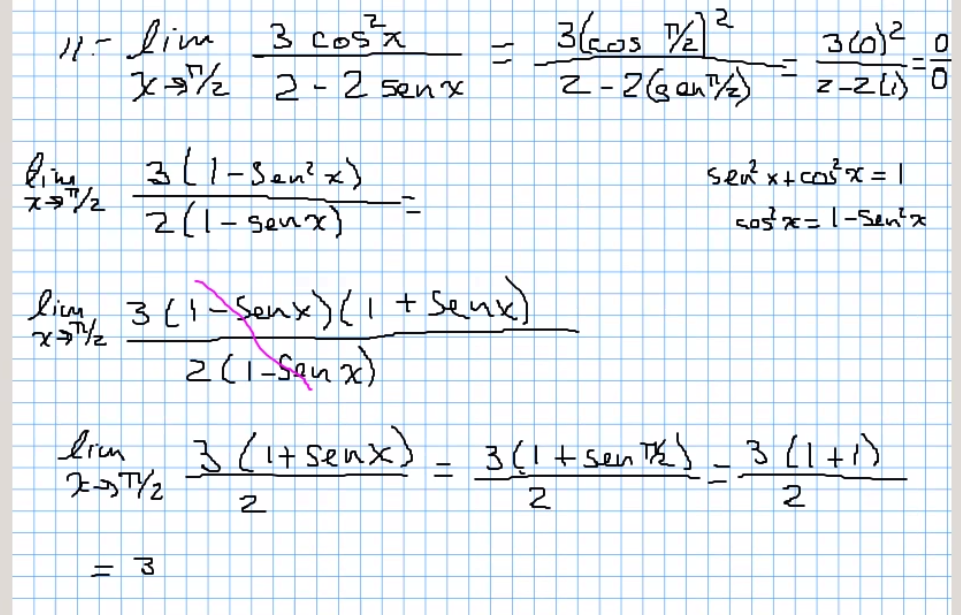 11.- lim x→π/2 3 cos²x / 2 - 2 sen x = 3(cos π/2)² / 2 - 2(sen π/2) = 3(0)² / 2 - 2(1) = 0/0
lim x→π/2 3(1 - sen²x) / 2(1 - sen x) =
sen²x + cos²x = 1
cos²x = 1 - sen²x
lim x→π/2 3(1 - sen x)(1 + sen x) / 2(1 - sen x)
lim x→π/2 3(1 + sen x) / 2 = 3(1 + sen π/2) / 2 = 3(1+1) / 2
= 3